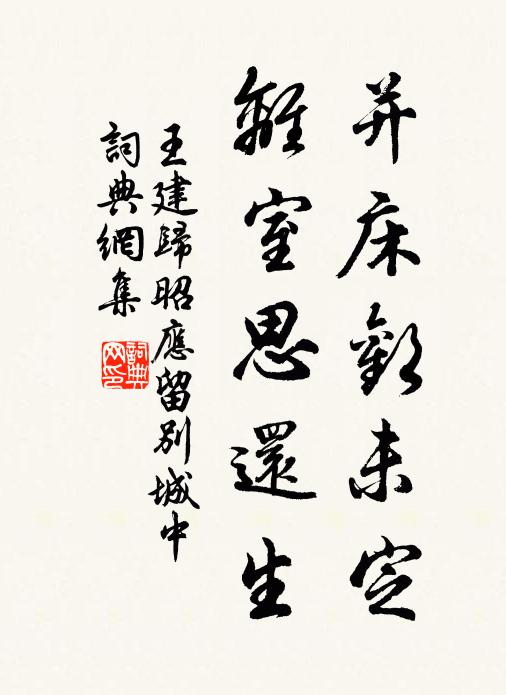 并床歡未定
離室思還生
王建歸昭應留別城中
詞典網集
詞典网印